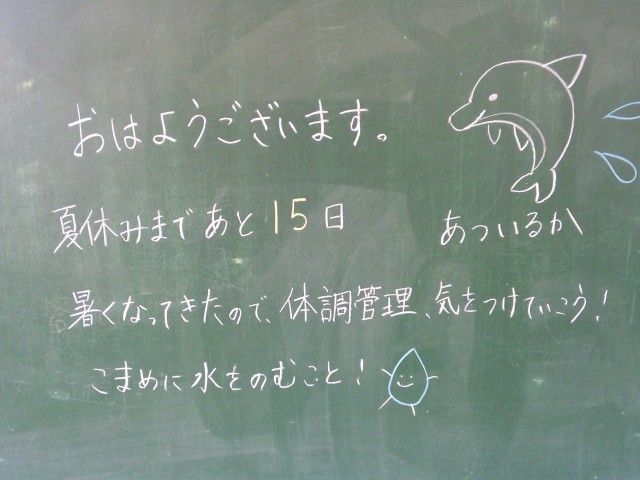 おはようございます。
夏休みまであと15日
あついるか
暑くなってきたので、体調管理、気をつけていこう!
こまめに水をのむこと!